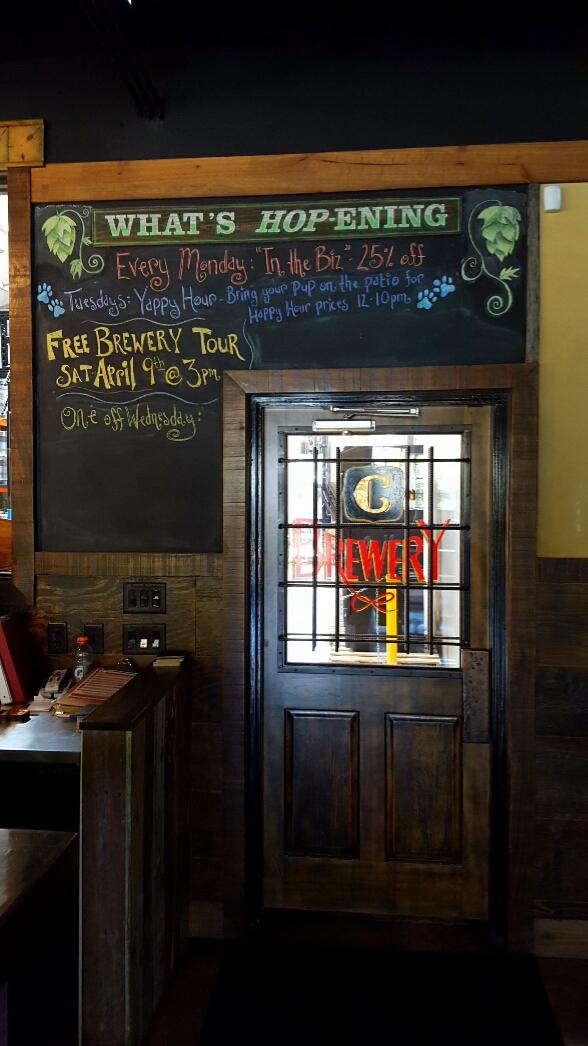 WHAT'S HOP-ENING
Every Monday: "In the Biz" 25% off
Tuesdays: Yappy Hour - Bring your Pup on the patio for
Happy Hour prices 12-10pm
FREE BREWERY TOUR
SAT April 9th @ 3pm
One off Wednesday:
C
BREWERY